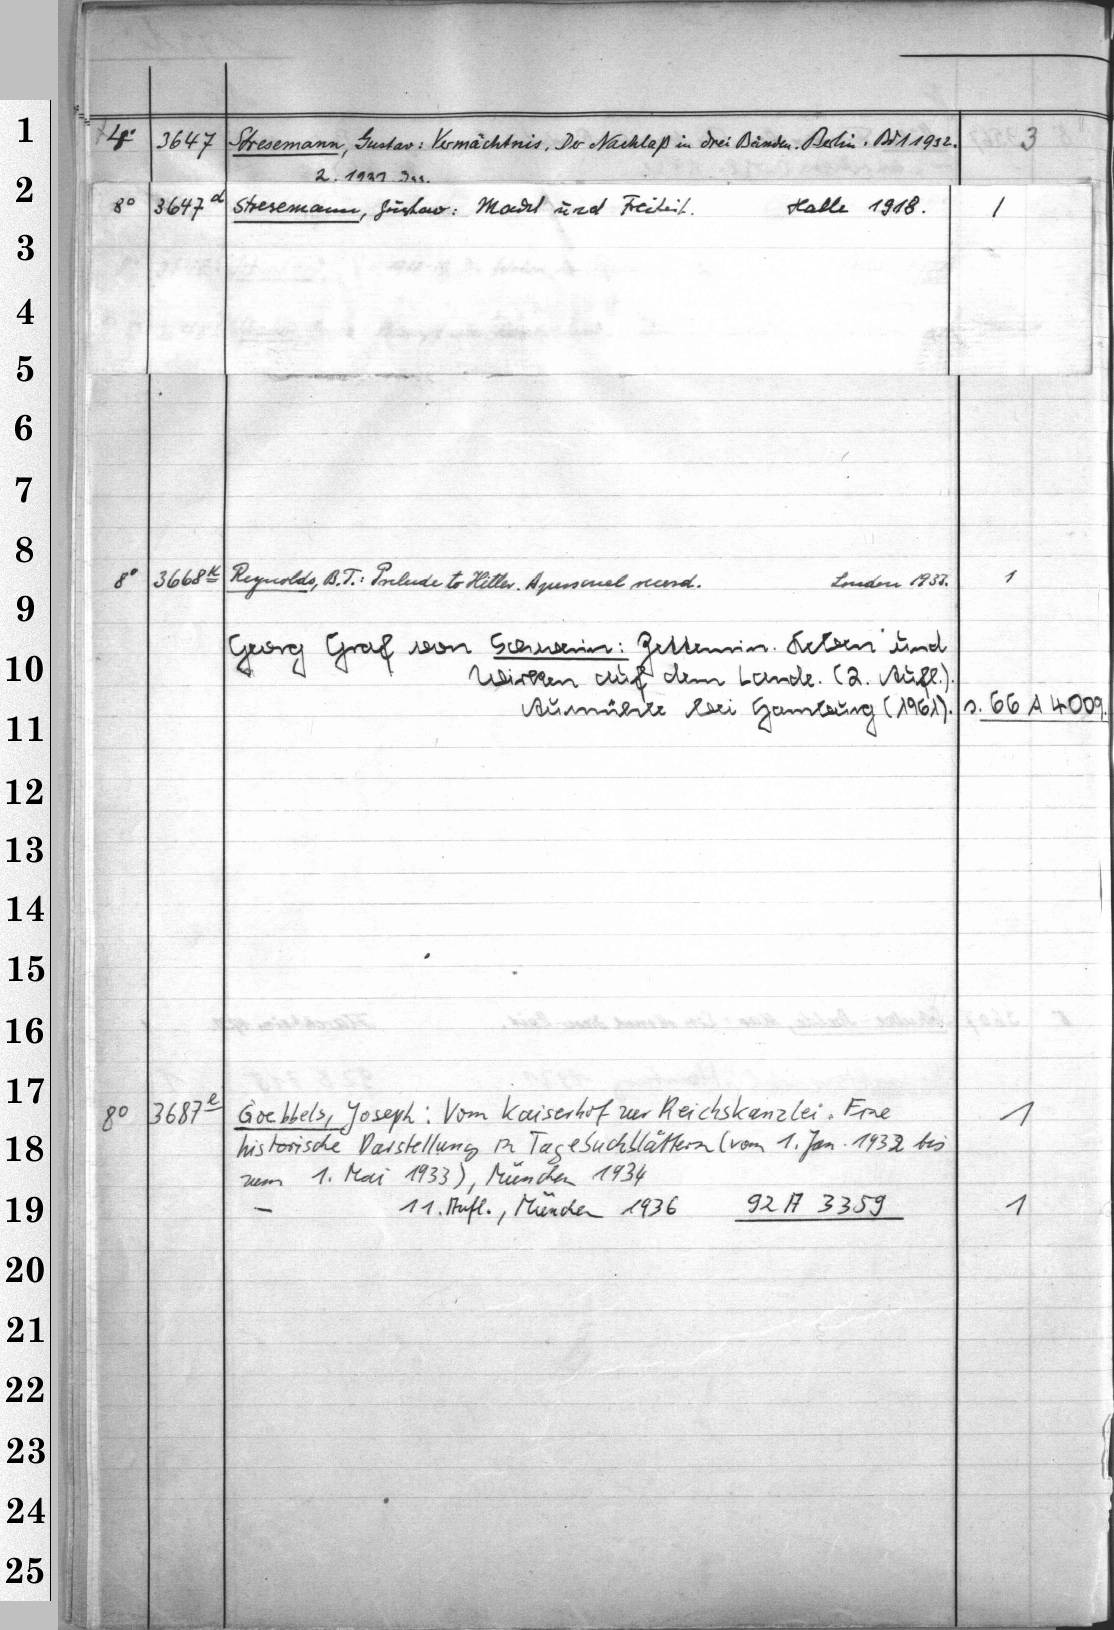 1
4° 3647 Stresemann, Gustav: Vermächtnis. Der Nachlaß in drei Bänden. Berlin. Bd 1 1932. 3
2
2. 1932
8° 3647d Stresemann, Gustav: Macht und Freiheit. Halle 1918. 1
3
4
5
6
7
8
8° 3668k Reynolds, B.T.: Prelude to Hitler. A personal record. London 1933. 1
9
Georg Graf von Schwerin: Zettemin. Leben und
10
Wirken auf dem Lande. (2. Aufl.).
Aumühle bei Hamburg (1961). s. 66 A 4009.
11
12
13
14
15
16
17
8° 3687e Goebbels, Joseph: Vom Kaiserhof zur Reichskanzlei. Eine 1
18
historische Darstellung in Tagebuchblättern (vom 1. Jan. 1932 bis
zum 1. Mai 1933), München 1934
19
— 11. Aufl., München 1936 92 A 3359 1
20
21
22
23
24
25